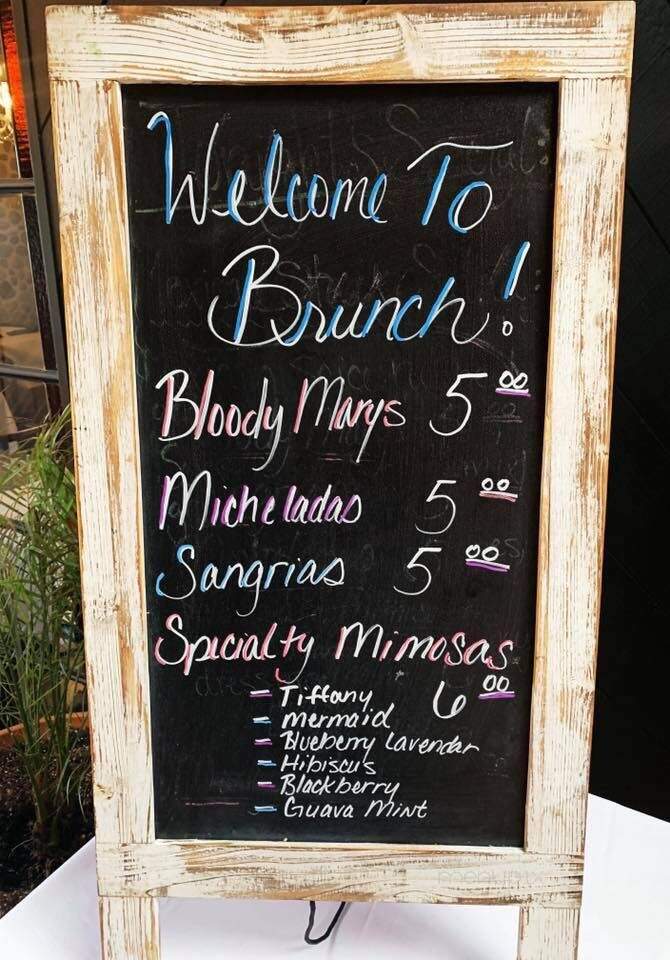 Welcome To
Brunch!
Bloody Marys 5 00
Micheladas 5 00
Sangrias 5 00
Specialty Mimosas
6 00
- Tiffany
- mermaid
- Blueberry Lavendar
- Hibiscus
- Blackberry
- Guava Mint